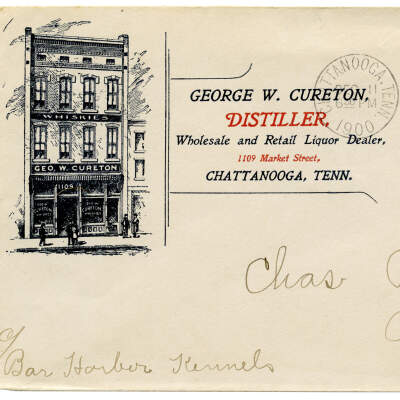 WHISKIES
GEO. W. CURETON
1109
GEORGE W. CURETON,
DISTILLER,
Wholesale and Retail Liquor Dealer,
1109 Market Street,
CHATTANOOGA, TENN.
CHATTANOOGA, TENN.
11
PM
1900
Chas
Bar Harbor Kennels